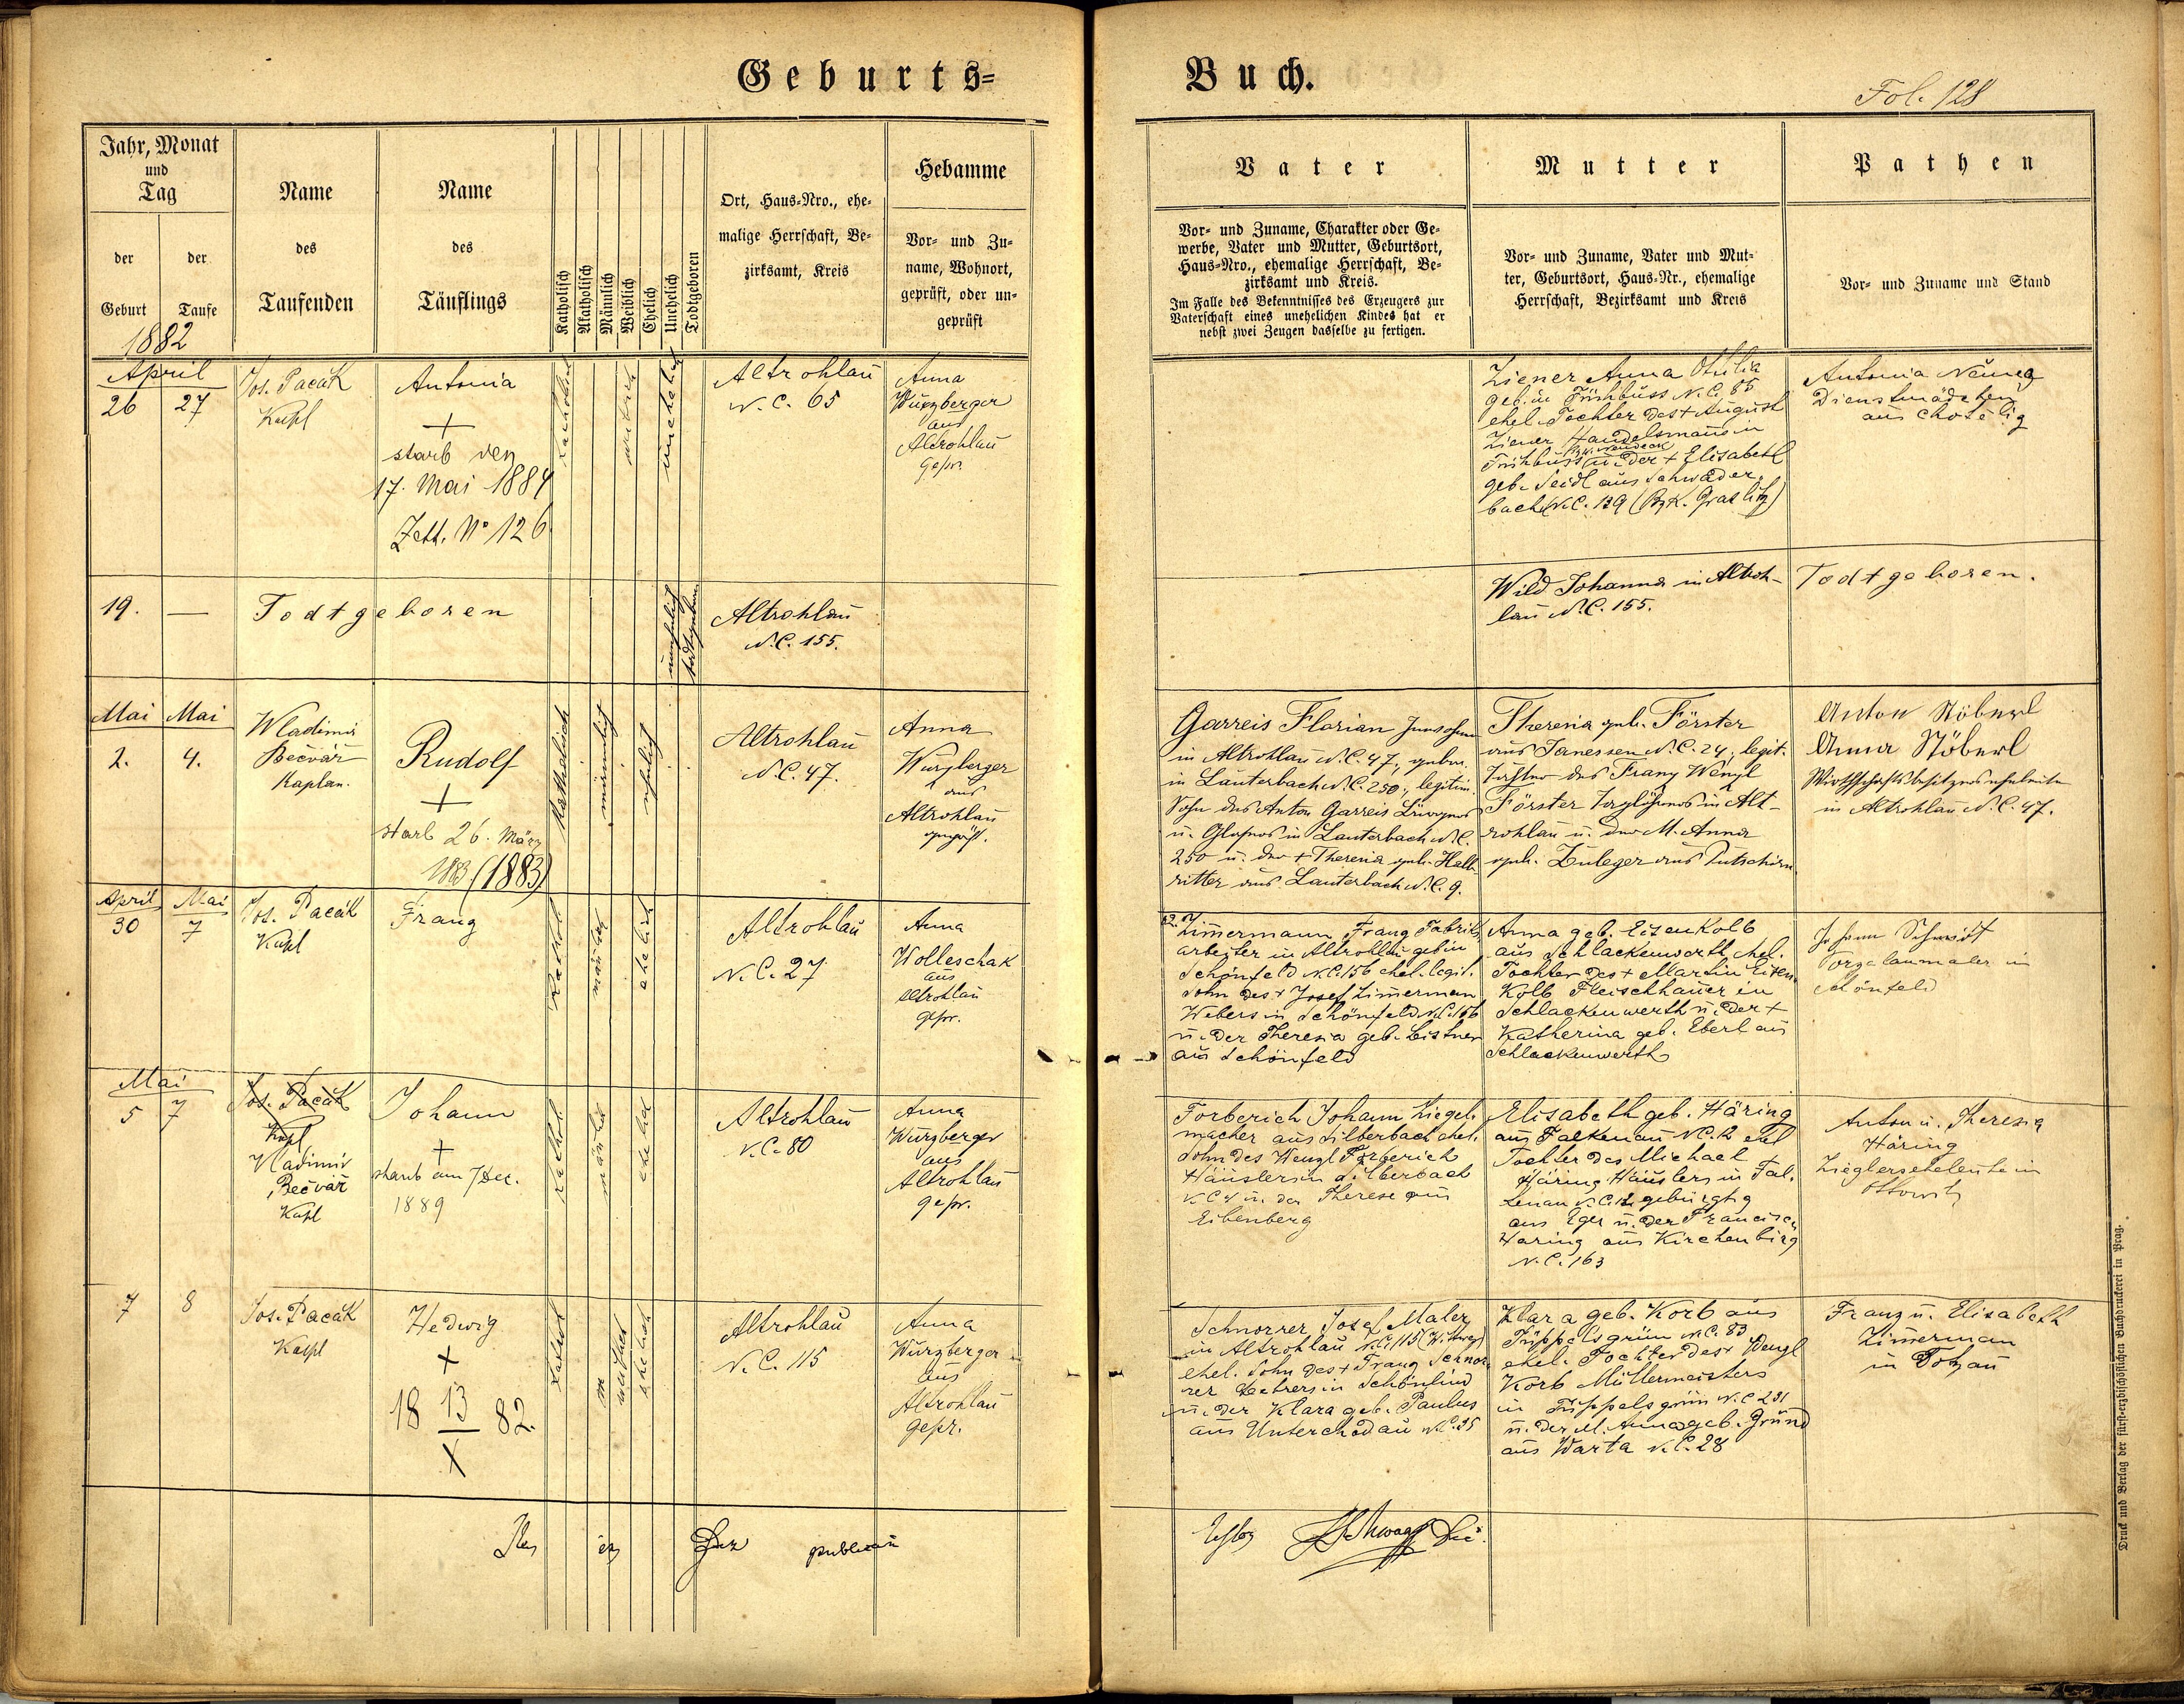 Geburts=
Buch.
Fol. 128
Jahr, Monat
und
Tag
der
Geburt
der
Taufe
1882
Name
des
Taufenden
Name
des
Täuflings
Katholisch
Akatholisch
Männlich
Weiblich
Ehelich
Unehelich
Todtgeboren
Ort, Haus-Nro., ehe-
malige Herrschaft, Be-
zirksamt, Kreis
Hebamme
Vor- und Zu-
name, Wohnort,
geprüft, oder un-
geprüft
Vater
Vor- und Zuname, Charakter oder Ge-
werbe, Vater und Mutter, Geburtsort,
Haus-Nro., ehemalige Herrschaft, Be-
zirksamt und Kreis.
Im Falle des Bekenntnisses des Erzeugers zur
Vaterschaft eines unehelichen Kindes hat er
nebst zwei Zeugen dasselbe zu fertigen.
Mutter
Vor- und Zuname, Vater und Mut-
ter, Geburtsort, Haus-Nr., ehemalige
Herrschaft, Bezirksamt und Kreis
Pathen
Vor- und Zuname und Stand
April
26
27
Jos. Pacák
Kapl
Antonia
+
starb den
17. Mai 1884
Zett. No 126
unehelich
Altrohlau
N. C. 65
Anna
Würzberger
aus
Altrohlau
gepr.
Ziener Anna Otilia
geb. in Frühbuss N. C. 85
ehel. Tochter des + August
Ziener Handelsmanns in
Frühbuss u. der + Elisabeth
geb. Seidl aus Schwader-
bach N. C. 139 (Bzk. Graslitz)
Antonia
Dienstmädchen
aus
19.
—
Todtgeboren
unehelich
todtgeboren
Altrohlau
N. C. 155.
Wild Johanna in Altroh-
lau N. C. 155.
Todtgeboren.
Mai
2.
Mai
4.
Wladimir
Bečvář
Kaplan.
Rudolf
+
starb 26. März
1883 (1883)
Katholisch
männlich
ehelich
Altrohlau
N. C. 47.
Anna
Würzberger
aus
Altrohlau
geprüft.
Garreis Florian
in Altrohlau N. C. 47, gebor.
in Lauterbach N. C. 250, legitim.
Sohn des Anton Garreis Bürgers
u. Glasers in Lauterbach N. C.
250 u. der + Theresia geb. Helb-
ritter aus Lauterbach N. C. 9.
Theresia geb. Förster
aus Janessen N. C. 24, legit.
Tochter des Franz Wenzl
Förster Taglöhners in Alt-
rohlau u. der M. Anna
geb. Zuleger aus Putschirn
Anton Stöberl
Anna Stöberl
Wirthschaftsbesitzerseheleute
in Altrohlau N. C. 47.
April
30
Mai
7
Jos. Pacák
Kapl
Franz
ehelich
Altrohlau
N. C. 27
Anna
Wolleschak
aus
Altrohlau
gepr.
Zimmermann Franz Fabriks-
arbeiter in Altrohlau geb in
Schönfeld N. C. 156 ehel. legit.
Sohn des + Josef Zimmerman
Webers in Schönfeld N. C. 156
u. der Theresia geb. Leistner
aus Schönfeld
Anna geb. Eisenkolb
aus Schlackenwerth ehel.
Tochter des + Martin Eisen-
kolb Fleischhauer in
Schlackenwerth u. der +
Katherina geb. Eberl aus
Schlackenwerth
Johann Schmidt
Porzelanmaler in
Schönfeld
Mai
5
7
Jos. Pacák
Kapl
Wladimir
Bečvář
Kapl
Johann
+
starb am 7 Dez.
1889
kathol.
männlich
ehelich
Altrohlau
N. C. 80
Anna
Würzberger
aus
Altrohlau
gepr.
Forberich Johann Ziegel-
macher aus Silberbach ehel.
Sohn des Wenzl Forberich
Häuslers in Silberbach
N. C. 4 u. der Therese aus
Eibenberg
Elisabeth geb. Häring
aus Falkenau N. C. 12 ehel
Tochter des Michael
Häring Häuslers in Fal-
kenau N. C. 12 gebürtig
aus Eger u. der Francisca
Haring aus Kirchenbirg
N. C. 163
Anton u. Theresia
Häring
Zieglerseheleute in
Ottowitz
7
8
Jos. Pacák
Kapl
Hedwig
+
18 13 82.
X
weiblich
ehelich
Altrohlau
N. C. 115
Anna
Würzberger
aus
Altrohlau
gepr.
Schnorrer Josef Maler
in Altrohlau N. C. 115 (Witwer)
ehel. Sohn des + Franz Schnor-
rer Lehrers in Schönlind
u. der Klara geb. Paulus
aus Unterchodau N. C. 25
Klara geb. Korb aus
Tüppelsgrün N. C. 83
ehel. Tochter des + Wenzl
Korb Müllermeisters
in Tüppelsgrün N. C. 231
u. der M. Anna geb. Gründ
aus Warta N. C. 28
Franz u. Elisabeth
Zimmerman
in Dotzau
Druck und Verlag der fürst-erzbischöflichen Buchdruckerei in Prag.